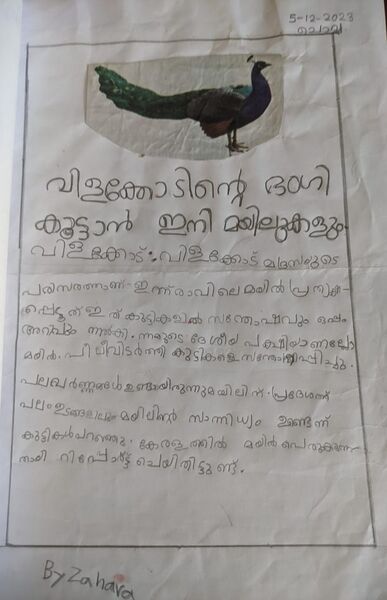 5-12-2023
ചൊവ്വ
വിളക്കോടിന്റെ ഭംഗി
കൂട്ടാൻ ഇനി മയിലുകളും
വിളക്കോട്: വിളക്കോട് മദ്രസയുടെ
പരിസരത്താണ് ഇന്ന് രാവിലെ മയിൽ പ്രത്യക്ഷ-
പ്പെട്ടത് ഇത് കുട്ടികളിൽ സന്തോഷവും ഒപ്പം
അറിവും നൽകി. നമ്മുടെ ദേശീയ പക്ഷിയാണല്ലോ
മയിൽ. പീലിവിടർത്തി കുട്ടികളെ സന്തോഷിപ്പിച്ചു.
പലവർണ്ണങ്ങൾ ഉണ്ടായിരുന്നു മയിലിന്. പ്രദേശത്ത്
പല ഇടങ്ങളിലും മയിലിന്റെ സാന്നിധ്യം ഉണ്ടെന്ന്
കുട്ടികൾ പറഞ്ഞു. കേരളത്തിൽ മയിൽ പെരുകുന്ന-
തായി റിപ്പോർട്ട് ചെയ്തിട്ടുണ്ട്.
By Zahara